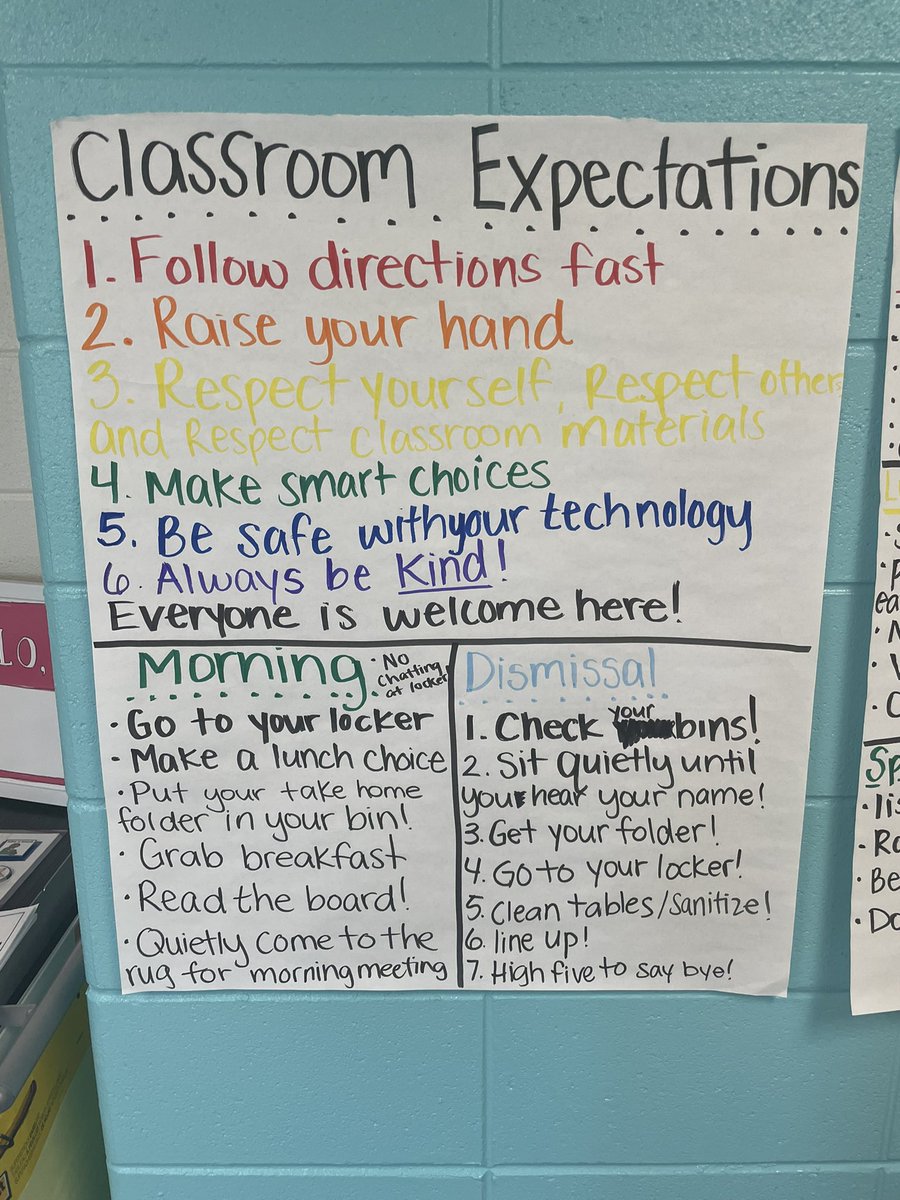 Classroom Expectations
1. Follow directions fast
2. Raise your hand
3. Respect yourself, Respect other
and Respect classroom materials
4. Make smart choices
5. Be safe with your technology
6. Always be Kind!
Everyone is welcome here!
Morning
• No
chatting
at locker!
• Go to your locker
• Make a lunch choice
• Put your take home
folder in your bin!
• Grab breakfast
• Read the board!
• Quietly come to the
rug for morning meeting
Dismissal
1. Check your bins!
2. Sit quietly until
you hear your name!
3. Get your folder!
4. Go to your locker!
5. Clean tables/Sanitize!
6. line up!
7. High five to say bye!
LO,